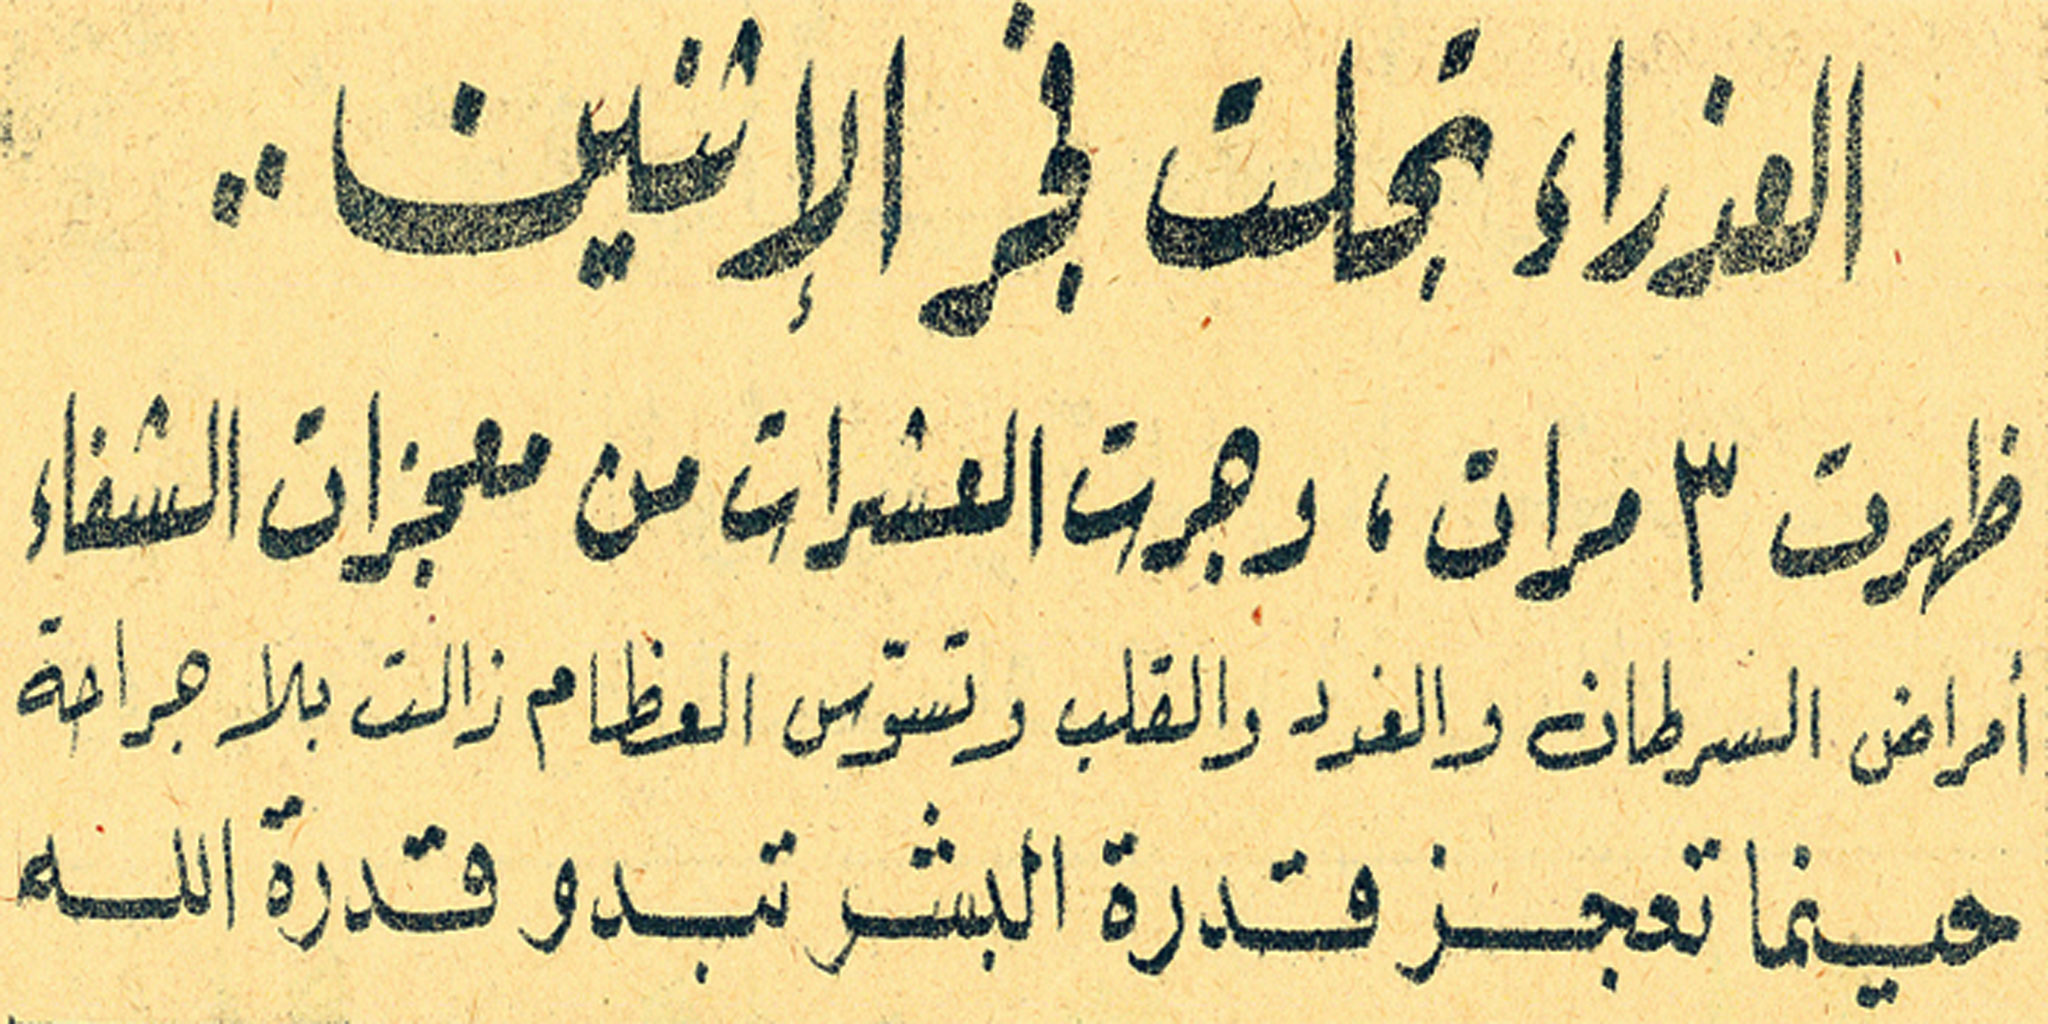 العذراء تجلت فجر الإثنين ..
ظهرت ٣ مرات ، وجرت العشرات من معجزات الشفاء
أمراض السرطان والغدد والقلب وتسوّس العظام زالت بلا جراحة
حينما تعجز قدرة البشر تبدو قدرة الله